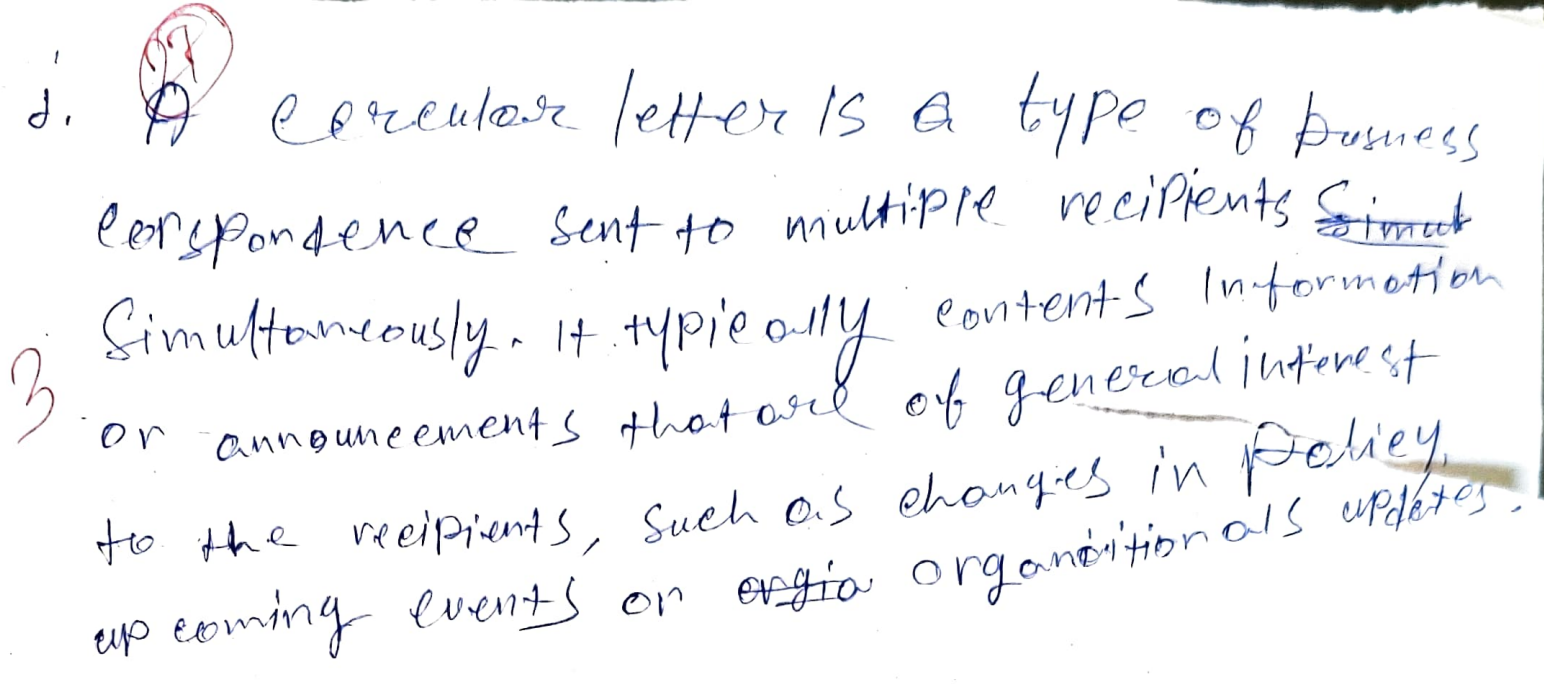 d. A cercular letter is a type of busness
corspondence sent to multiple recipients Simut
Simultaneously. It typically contents Information
3 or announcements that are of general interest
to the recipients, such as changies in Policy,
up coming events or orgia organoitionals updetes.